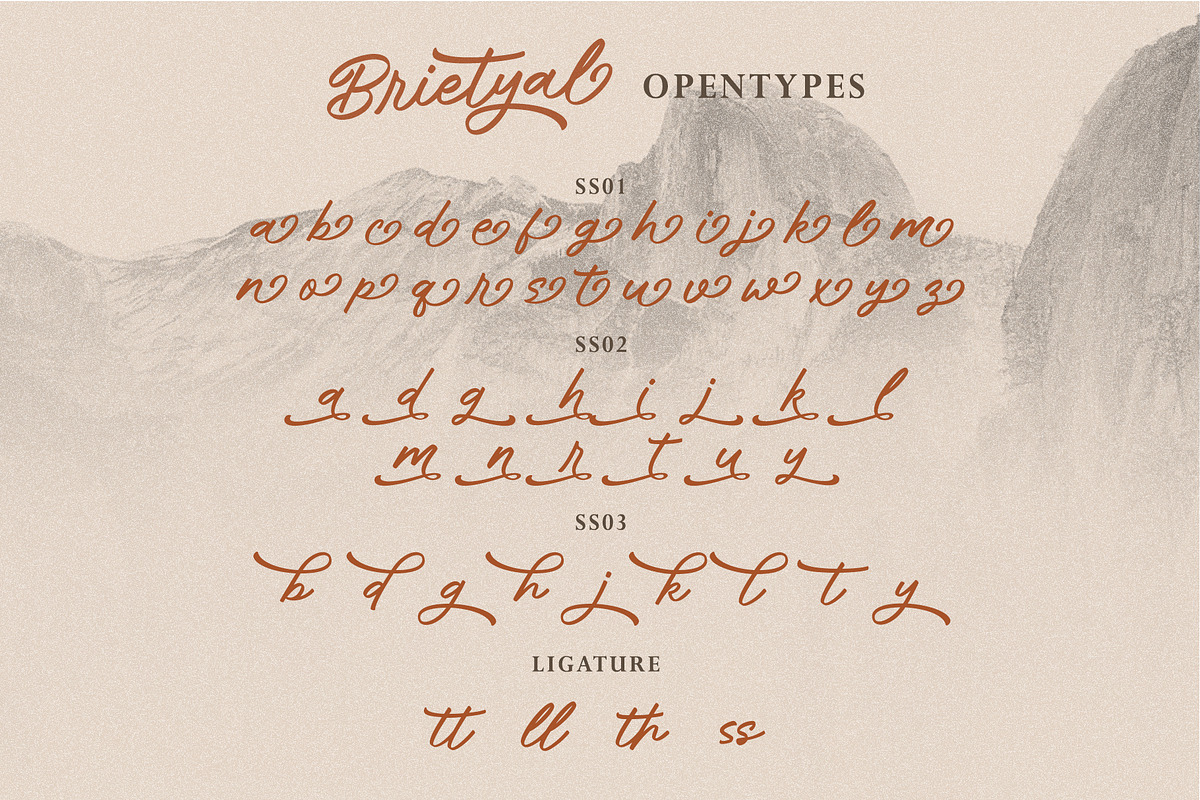 Brietyal OPENTYPES
SS01
a b c d e f g h i j k l m
n o p q r s t u v w x y z
SS02
a d g h i j k l
m n r t u y
SS03
b d g h j k l t y
LIGATURE
tt ll th ss